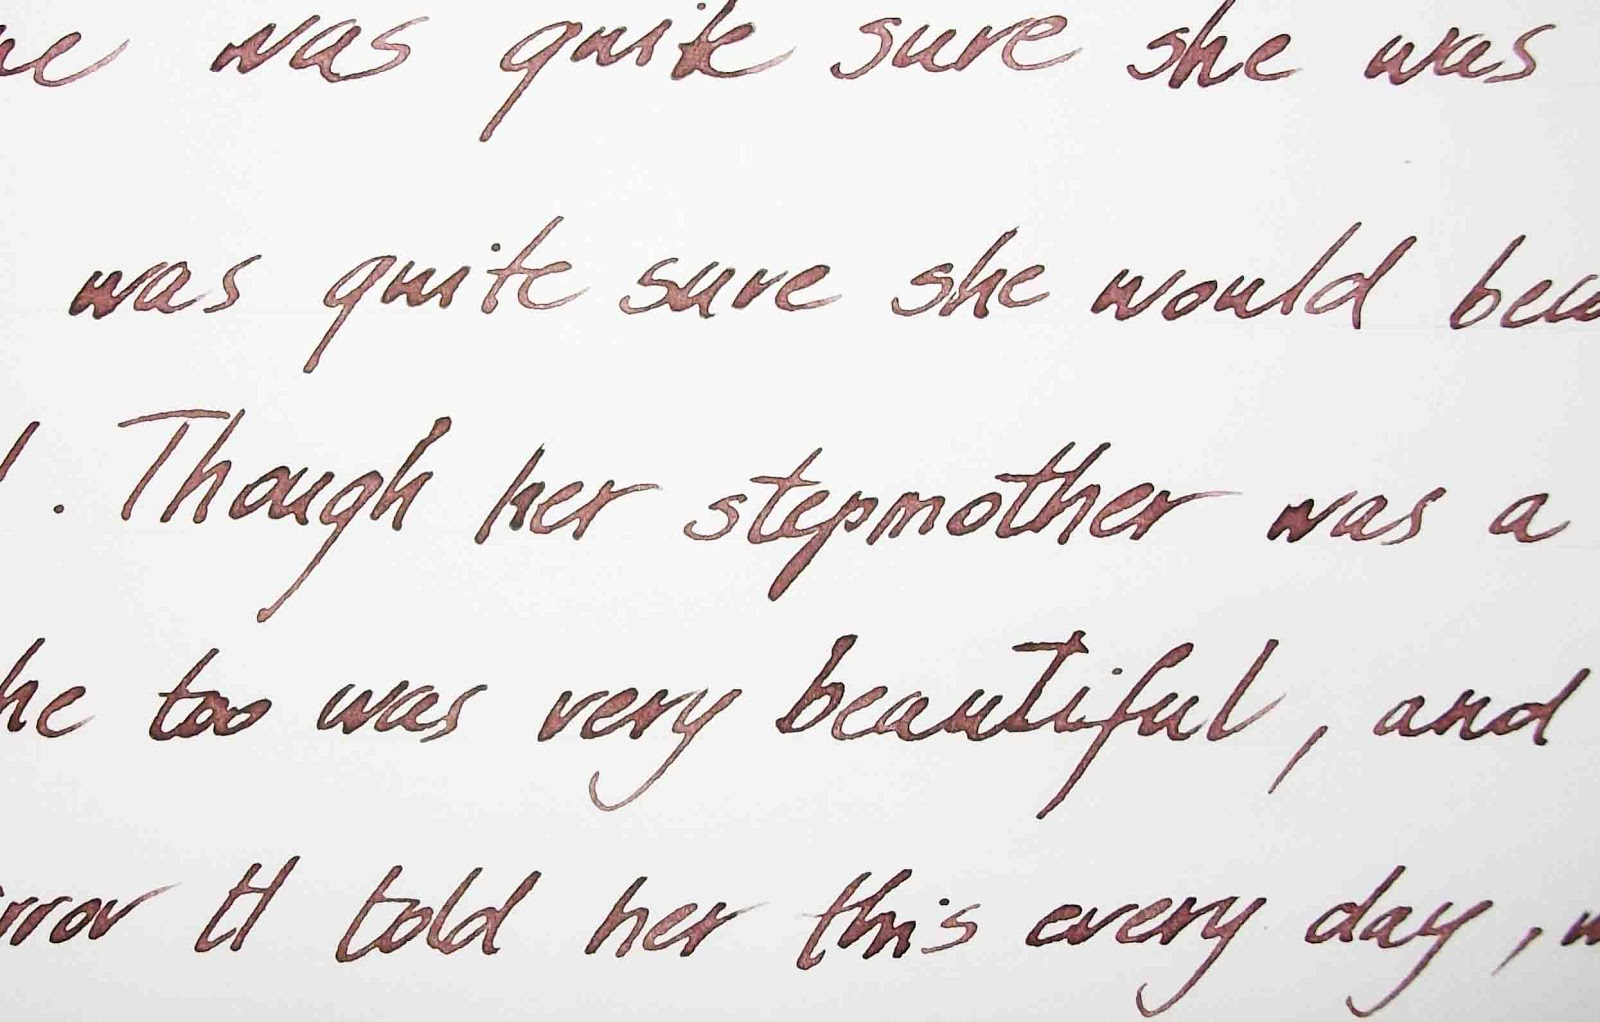 was quite sure she was
was quite sure she would
. Though her stepmother was a
he too was very beautiful, and
told her this every day,